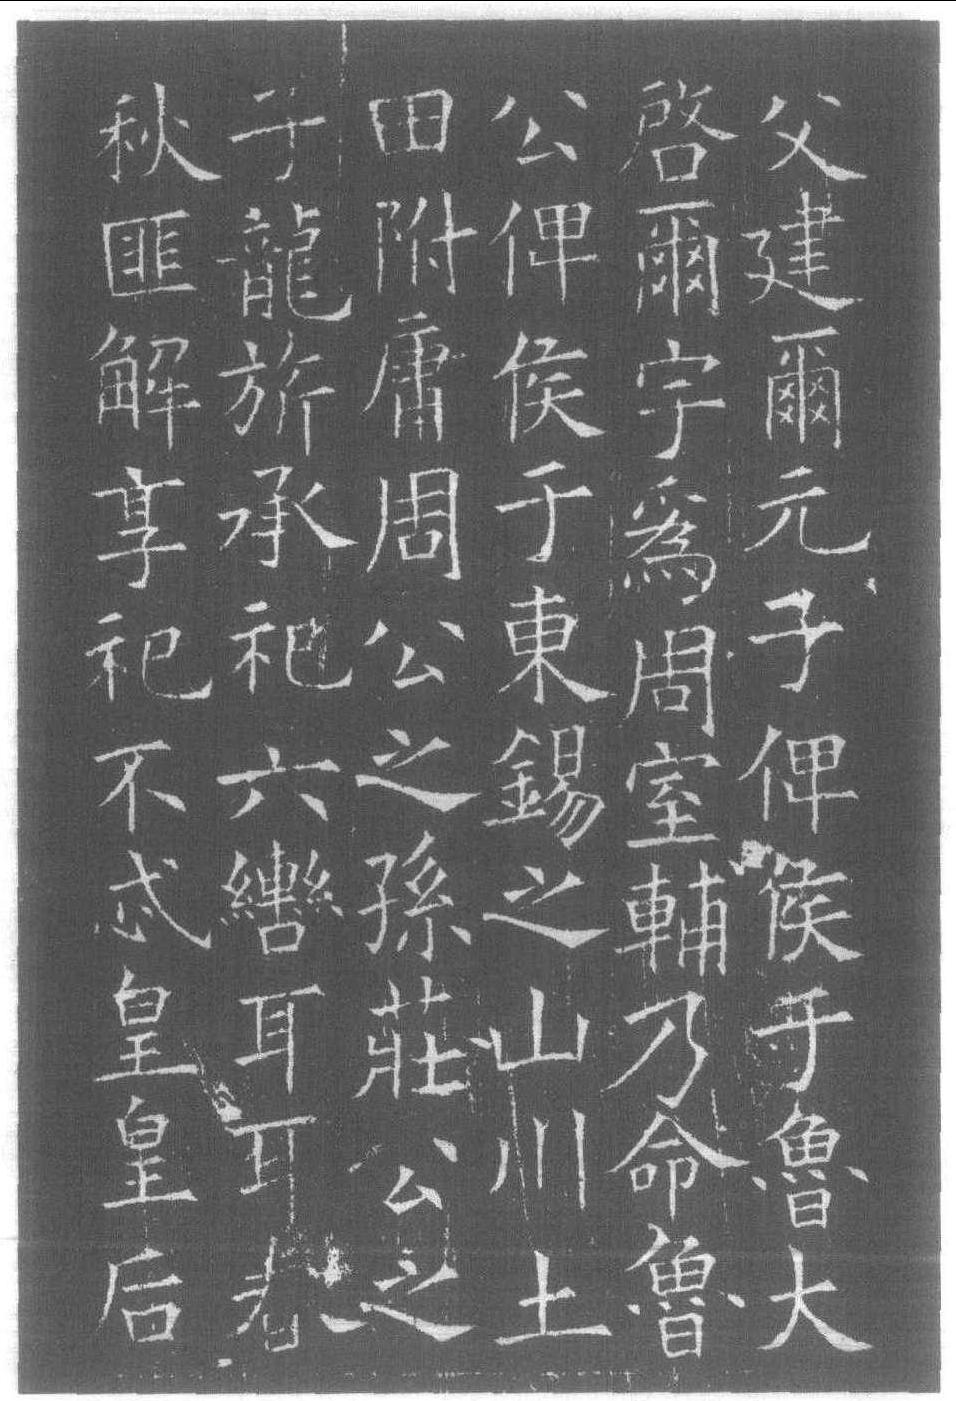 父建爾元子俾侯于魯大
啓爾宇爲周室輔乃命魯
公俾侯于東錫之山川土
田附庸周公之孫莊公之
子龍旂承祀六轡耳耳春
秋匪解享祀不忒皇皇后